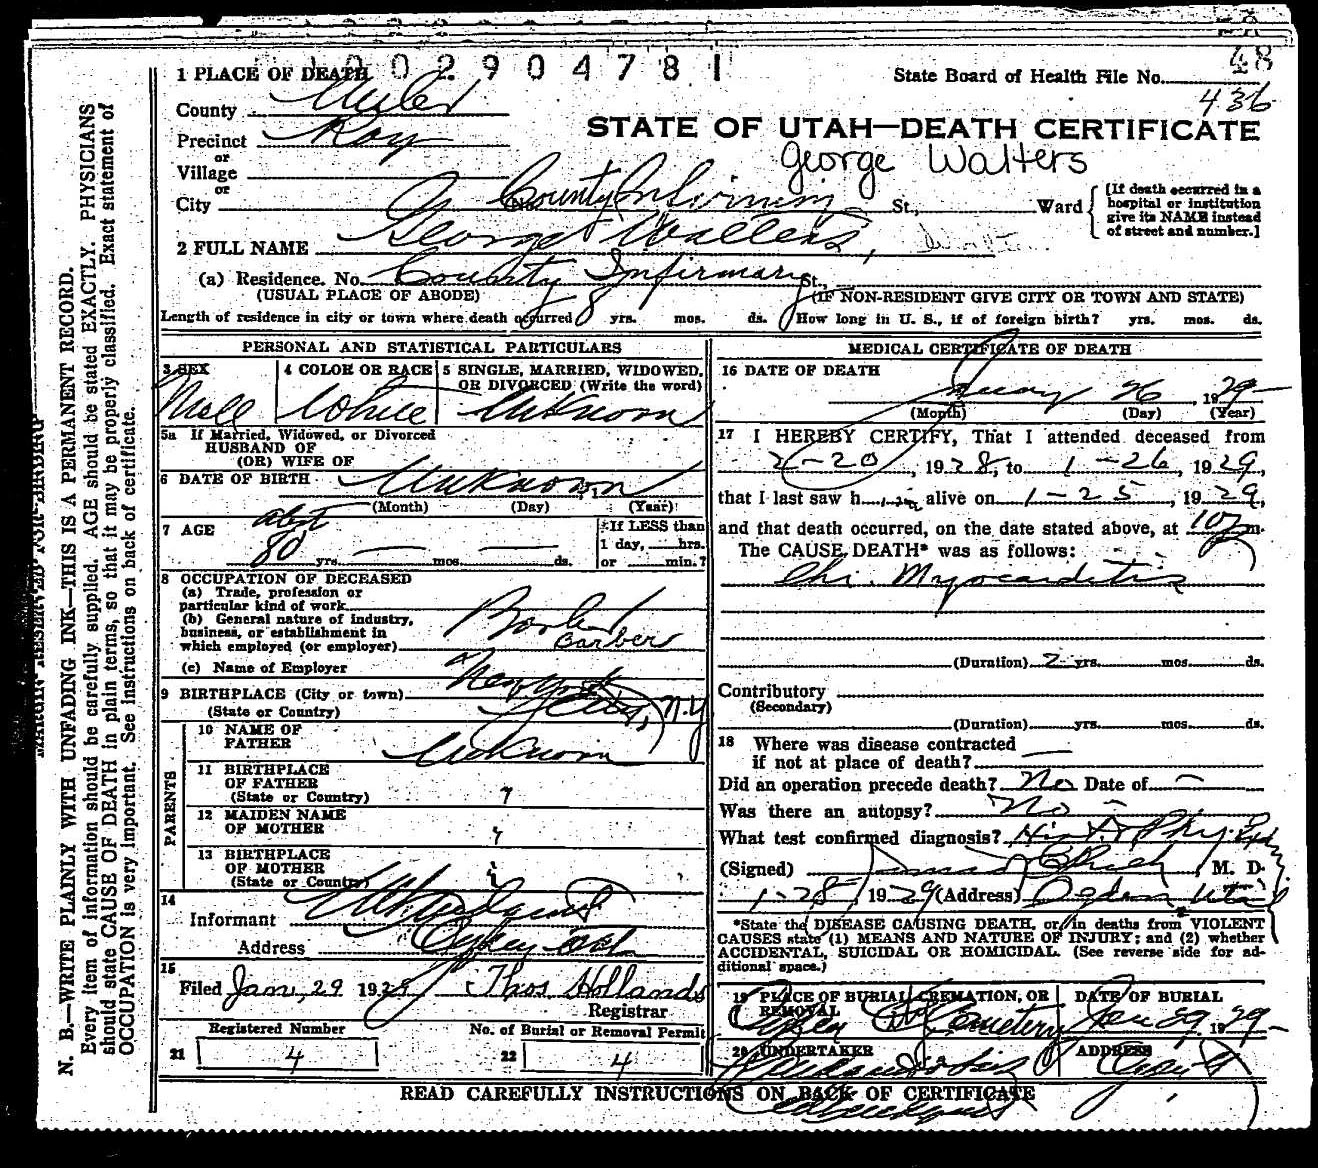 1002904781
48
State Board of Health File No.
436
1 PLACE OF DEATH
County Weber
Precinct Roy
or
Village
or
City No. County Infirmary St., Ward
[If death occurred in a
hospital or institution
give its NAME instead
of street and number.]
STATE OF UTAH—DEATH CERTIFICATE
George Walters
2 FULL NAME George Walters,
(a) Residence. No. County Infirmary St.,
(USUAL PLACE OF ABODE) (IF NON-RESIDENT GIVE CITY OR TOWN AND STATE)
Length of residence in city or town where death occurred 8 yrs. mos. ds. How long in U. S., if of foreign birth? yrs. mos. ds.
PERSONAL AND STATISTICAL PARTICULARS
3 SEX
Male
4 COLOR OR RACE
White
5 SINGLE, MARRIED, WIDOWED,
OR DIVORCED (Write the word)
Unknown
5a If Married, Widowed, or Divorced
HUSBAND OF
(OR) WIFE OF
6 DATE OF BIRTH Unknown
(Month) (Day) (Year)
7 AGE
abt
80 yrs. — mos. — ds.
If LESS than
1 day, hrs.
or min.?
8 OCCUPATION OF DECEASED
(a) Trade, profession or
particular kind of work
(b) General nature of industry,
business, or establishment in
which employed (or employer)
Barber
Barber
(c) Name of Employer
9 BIRTHPLACE (City or town) New York
(State or Country) City, N.Y.
PARENTS
10 NAME OF
FATHER Unknown
11 BIRTHPLACE
OF FATHER
(State or Country) ?
12 MAIDEN NAME
OF MOTHER ?
13 BIRTHPLACE
OF MOTHER
(State or Country)
14
Informant
Address
15
Filed Jan, 29 1929 Thos Hollands
Registrar
Registered Number
21 4
No. of Burial or Removal Permit
22 4
MEDICAL CERTIFICATE OF DEATH
16 DATE OF DEATH
January 26, 1929
(Month) (Day) (Year)
17 I HEREBY CERTIFY, That I attended deceased from
2-20, 1928, to 1-26, 1929,
that I last saw him alive on 1-25, 1929,
and that death occurred, on the date stated above, at m.
The CAUSE DEATH* was as follows:
Chr. Myocarditis
(Duration) 2 yrs. mos. ds.
Contributory
(Secondary)
(Duration) yrs. mos. ds.
18 Where was disease contracted
if not at place of death? —
Did an operation precede death? No Date of —
Was there an autopsy? No —
What test confirmed diagnosis? Hist & Phy. Ex
(Signed) M. D.
1-28, 1929 (Address) Ogden Utah
*State the DISEASE CAUSING DEATH, or in deaths from VIOLENT
CAUSES state (1) MEANS AND NATURE OF INJURY; and (2) whether
ACCIDENTAL, SUICIDAL OR HOMICIDAL. (See reverse side for ad-
ditional space.)
19 PLACE OF BURIAL, CREMATION, OR
REMOVAL
Ogden City Cemetery
DATE OF BURIAL
Jan 29, 1929
20 UNDERTAKER
ADDRESS
READ CAREFULLY INSTRUCTIONS ON BACK OF CERTIFICATE
MARGIN RESERVED FOR BINDING
N. B.—WRITE PLAINLY WITH UNFADING INK—THIS IS A PERMANENT RECORD.
Every item of information should be carefully supplied. AGE should be stated EXACTLY. PHYSICIANS
should state CAUSE OF DEATH in plain terms, so that it may be properly classified. Exact statement of
OCCUPATION is very important. See instructions on back of certificate.